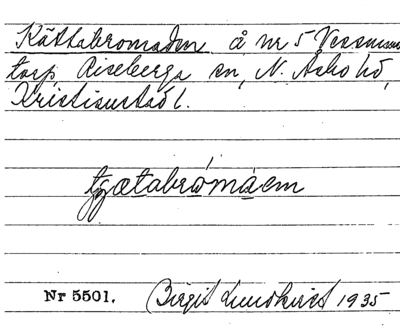 Kättabromaden å nr 5 Vessman
torp, Riseberga sn, N. Åsbo hd,
Kristianstad l.
tjætabrómáen
Nr 5501. Birgit Lundkvist 1935